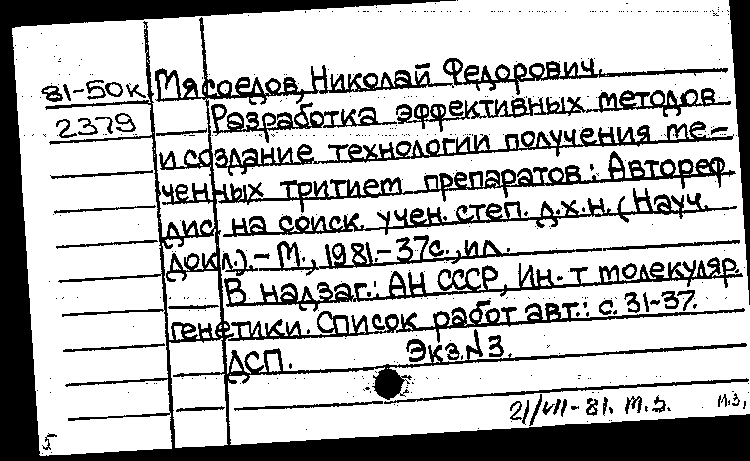 81-50к Мясоедов, Николай Федорович.
2379 Разработка эффективных методов
и создание технологии получения ме-
ченных тритием препаратов: Автореф.
дис. на соиск. учен. степ. д.х.н. (Науч.
докл.).- М., 1981.- 37с., ил.
В надзаг.: АН СССР, Ин-т молекуляр.
генетики. Список работ авт.: с. 31-37.
ДСП. Экз.N3.
21/VII-81. М.З. М.З,
5